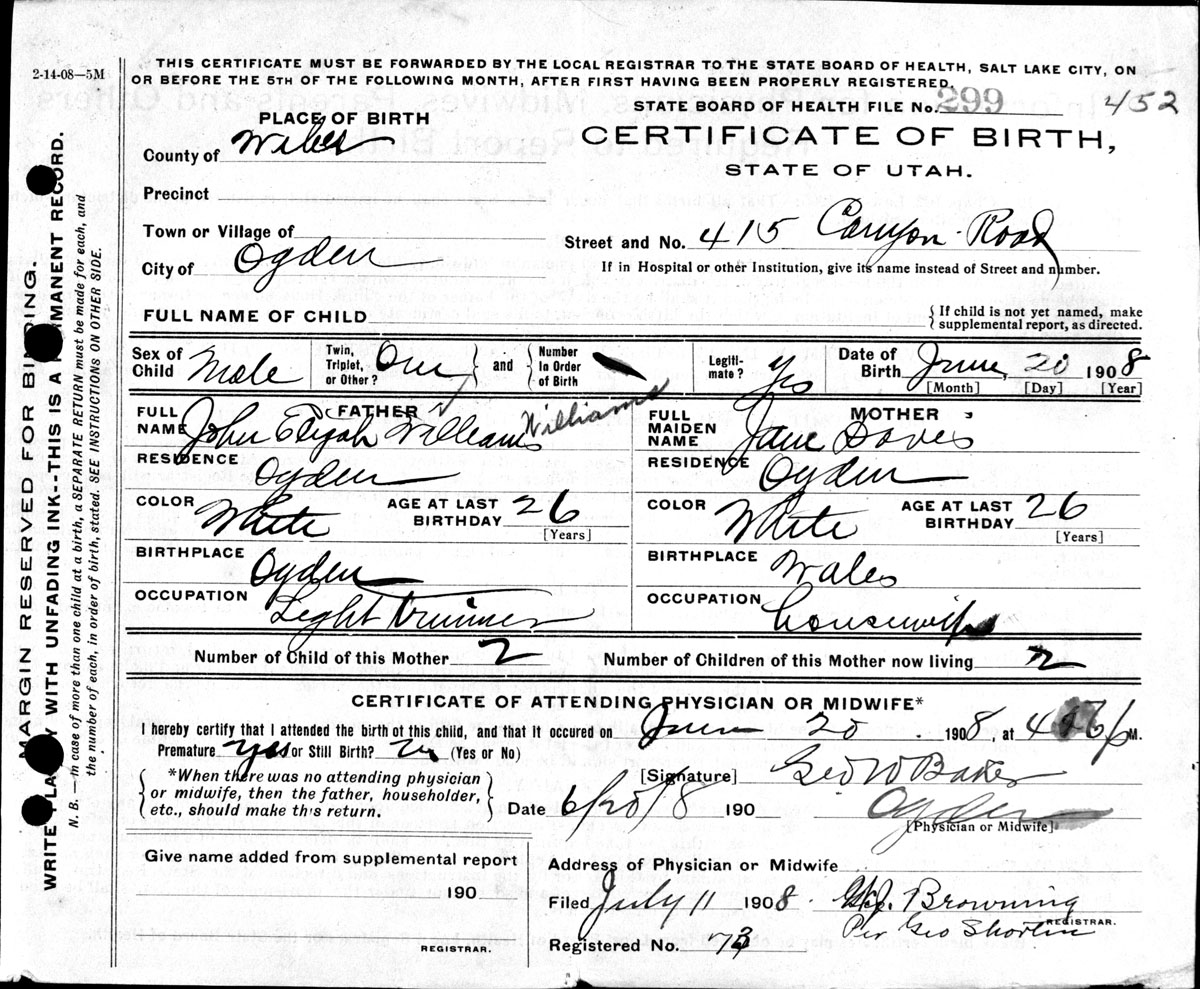 2-14-08—5M
THIS CERTIFICATE MUST BE FORWARDED BY THE LOCAL REGISTRAR TO THE STATE BOARD OF HEALTH, SALT LAKE CITY, ON
OR BEFORE THE 5TH OF THE FOLLOWING MONTH, AFTER FIRST HAVING BEEN PROPERLY REGISTERED.
STATE BOARD OF HEALTH FILE No. 299 452
PLACE OF BIRTH
CERTIFICATE OF BIRTH,
STATE OF UTAH.
County of Weber
Precinct
Town or Village of
Street and No. 415 Canyon Road
City of Ogden
If in Hospital or other Institution, give its name instead of Street and number.
FULL NAME OF CHILD
If child is not yet named, make
supplemental report, as directed.
Sex of Child Male
Twin, Triplet, or Other? One and Number In Order of Birth
Legiti-mate? Yes
Date of Birth June 20 1908
[Month] [Day] [Year]
FATHER
FULL NAME John Elijah Williams Williams
MOTHER
FULL MAIDEN NAME Jane
RESIDENCE Ogden
RESIDENCE Ogden
COLOR White AGE AT LAST BIRTHDAY 26 [Years]
COLOR White AGE AT LAST BIRTHDAY 26 [Years]
BIRTHPLACE Ogden
BIRTHPLACE Wales
OCCUPATION Light Trimmer
OCCUPATION housewife
Number of Child of this Mother 2 Number of Children of this Mother now living 2
CERTIFICATE OF ATTENDING PHYSICIAN OR MIDWIFE*
I hereby certify that I attended the birth of this child, and that it occured on June 20 1908, at 4 M.
Premature yes or Still Birth? (Yes or No)
*When there was no attending physician
or midwife, then the father, householder,
etc., should make this return.
[Signature] Geo W Baker
Date 6/20/8 190 Ogden
[Physician or Midwife]
Give name added from supplemental report
190
REGISTRAR.
Address of Physician or Midwife
Filed July 11 1908 Browning
Per Geo Shorten
REGISTRAR.
Registered No.
MARGIN RESERVED FOR BINDING.
WRITE PLA Y WITH UNFADING INK--THIS IS A MANENT RECORD.
N. B.—In case of more than one child at a birth, a SEPARATE RETURN must be made for each, and
the number of each, in order of birth, stated. SEE INSTRUCTIONS ON OTHER SIDE.